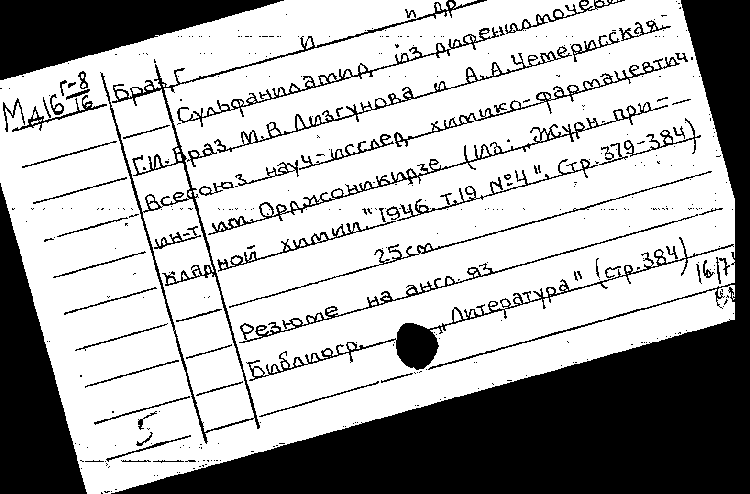 Мд16 Г-8/16
Браз, Г. и и др
Сульфаниламид из дифенилмочеви
Г.И. Браз, М.В. Лизгунова и А.А. Чемерисская:
Всесоюз. науч-исслед. химико-фармацевтич.
ин-т им. Орджоникидзе (Из: „Журн. при-
кладной химии." 1946. Т.19, №4". Стр. 379-384)
25см.
Резюме на англ. яз
Библиогр. „Литература" (стр. 384)
16/7
5